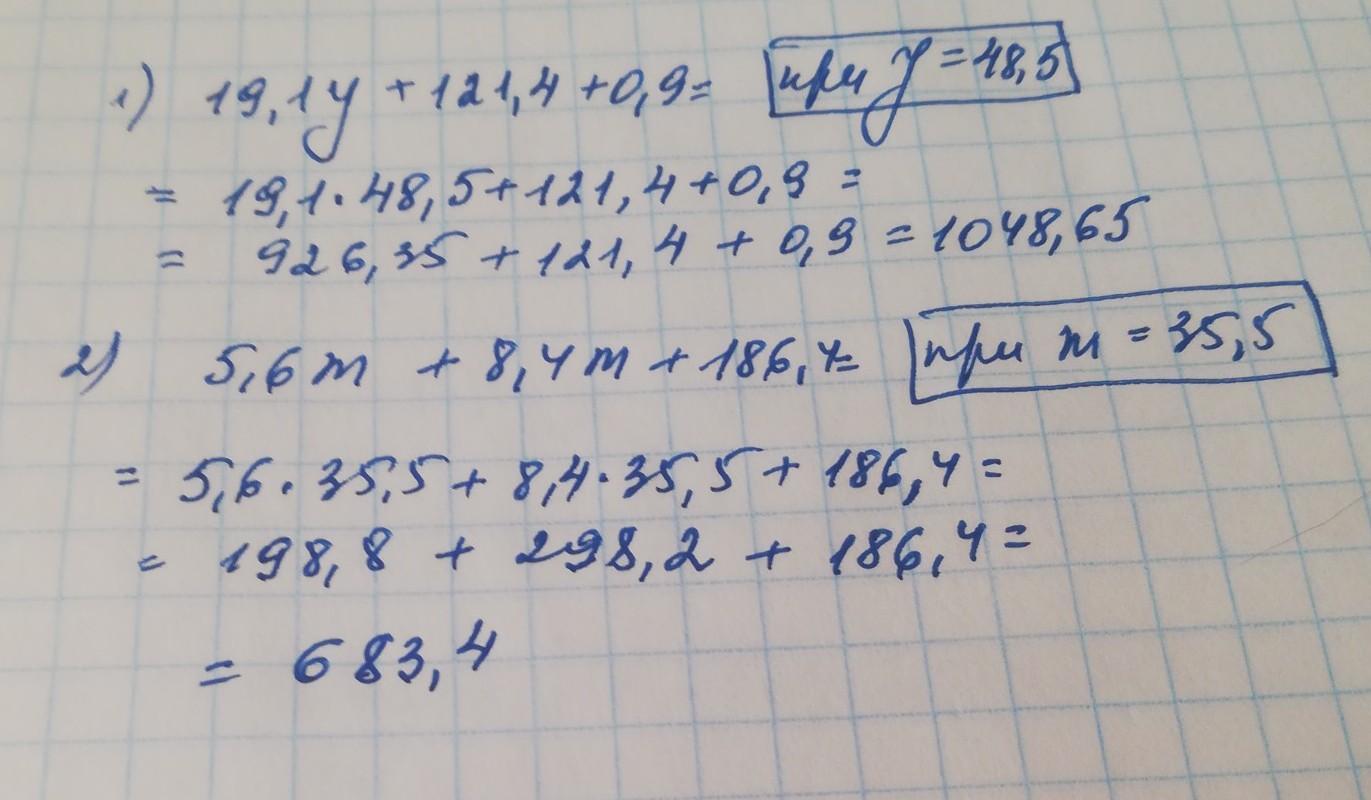 1) 19,1y + 121,4 + 0,9 = при y = 48,5
= 19,1 · 48,5 + 121,4 + 0,9 =
= 926,35 + 121,4 + 0,9 = 1048,65
2) 5,6m + 8,4m + 186,4 = при m = 35,5
= 5,6 · 35,5 + 8,4 · 35,5 + 186,4 =
= 198,8 + 298,2 + 186,4 =
= 683,4